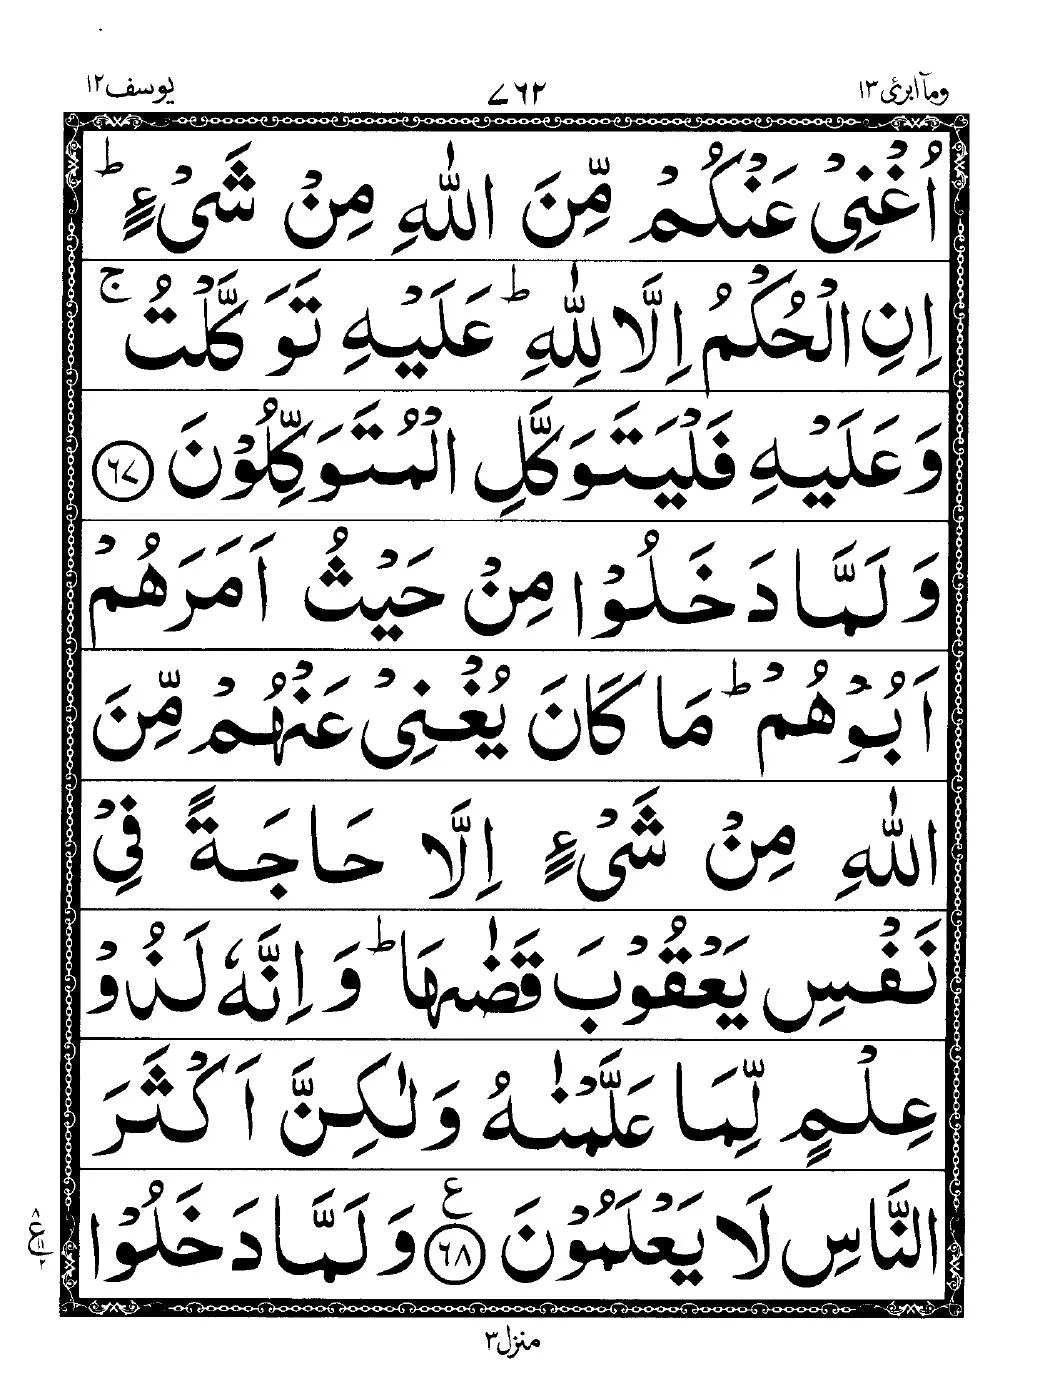 وماۤ ابرئ ١٣ ٧٦٢ يوسف ١٢
اُغْنِیْ عَنْكُمْ مِّنَ اللّٰهِ مِنْ شَیْءٍ ؕ
اِنِ الْحُكْمُ اِلَّا لِلّٰهِ ؕ عَلَیْهِ تَوَكَّلْتُ ۚ
وَعَلَیْهِ فَلْیَتَوَكَّلِ الْمُتَوَكِّلُوْنَ ﴿٦٧﴾
وَلَمَّا دَخَلُوْا مِنْ حَیْثُ اَمَرَهُمْ
اَبُوْهُمْ ؕ مَا كَانَ یُغْنِیْ عَنْهُمْ مِّنَ
اللّٰهِ مِنْ شَیْءٍ اِلَّا حَاجَةً فِیْ
نَفْسِ یَعْقُوْبَ قَضٰىهَا ؕ وَاِنَّهٗ لَذُوْ
عِلْمٍ لِّمَا عَلَّمْنٰهُ وَلٰكِنَّ اَكْثَرَ
النَّاسِ لَا یَعْلَمُوْنَ ﴿٦٨﴾ ع وَلَمَّا دَخَلُوْا
٨ ع ١١ ٢
منزل ٣